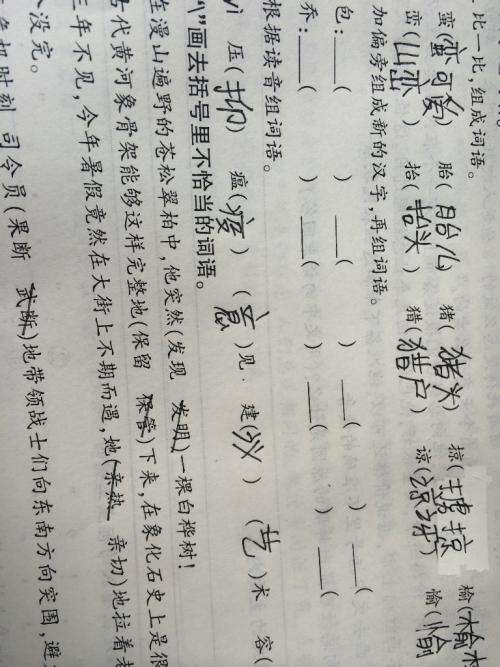 比一比,组成词语。
蛮(蛮可爱) 胎(胎儿) 猪(猪头) 掠(掳掠) 榆(榆
峦(山峦) 抬(抬头) 猎(猎户) 谅( ) 愉(愉
加偏旁组成新的汉字,再组词语。
包:___( )___( )___( )___(
乔:___( )___( )___( )___(
根据读音组词语。
yì 压(抑) 瘟(疫) (意)见 建(议) (艺)术 容(
“\”画去括号里不恰当的词语。
在漫山遍野的苍松翠柏中,他突然(发现 发明)一棵白桦树!
古代黄河象骨架能够这样完整地(保留 保管)下来,在象化石史上是很
三年不见,今年暑假竟然在大街上不期而遇,她(亲热 亲切)地拉着
没完。
机时刻,司令员(果断 武断)地带领战士们向东南方向突围,避